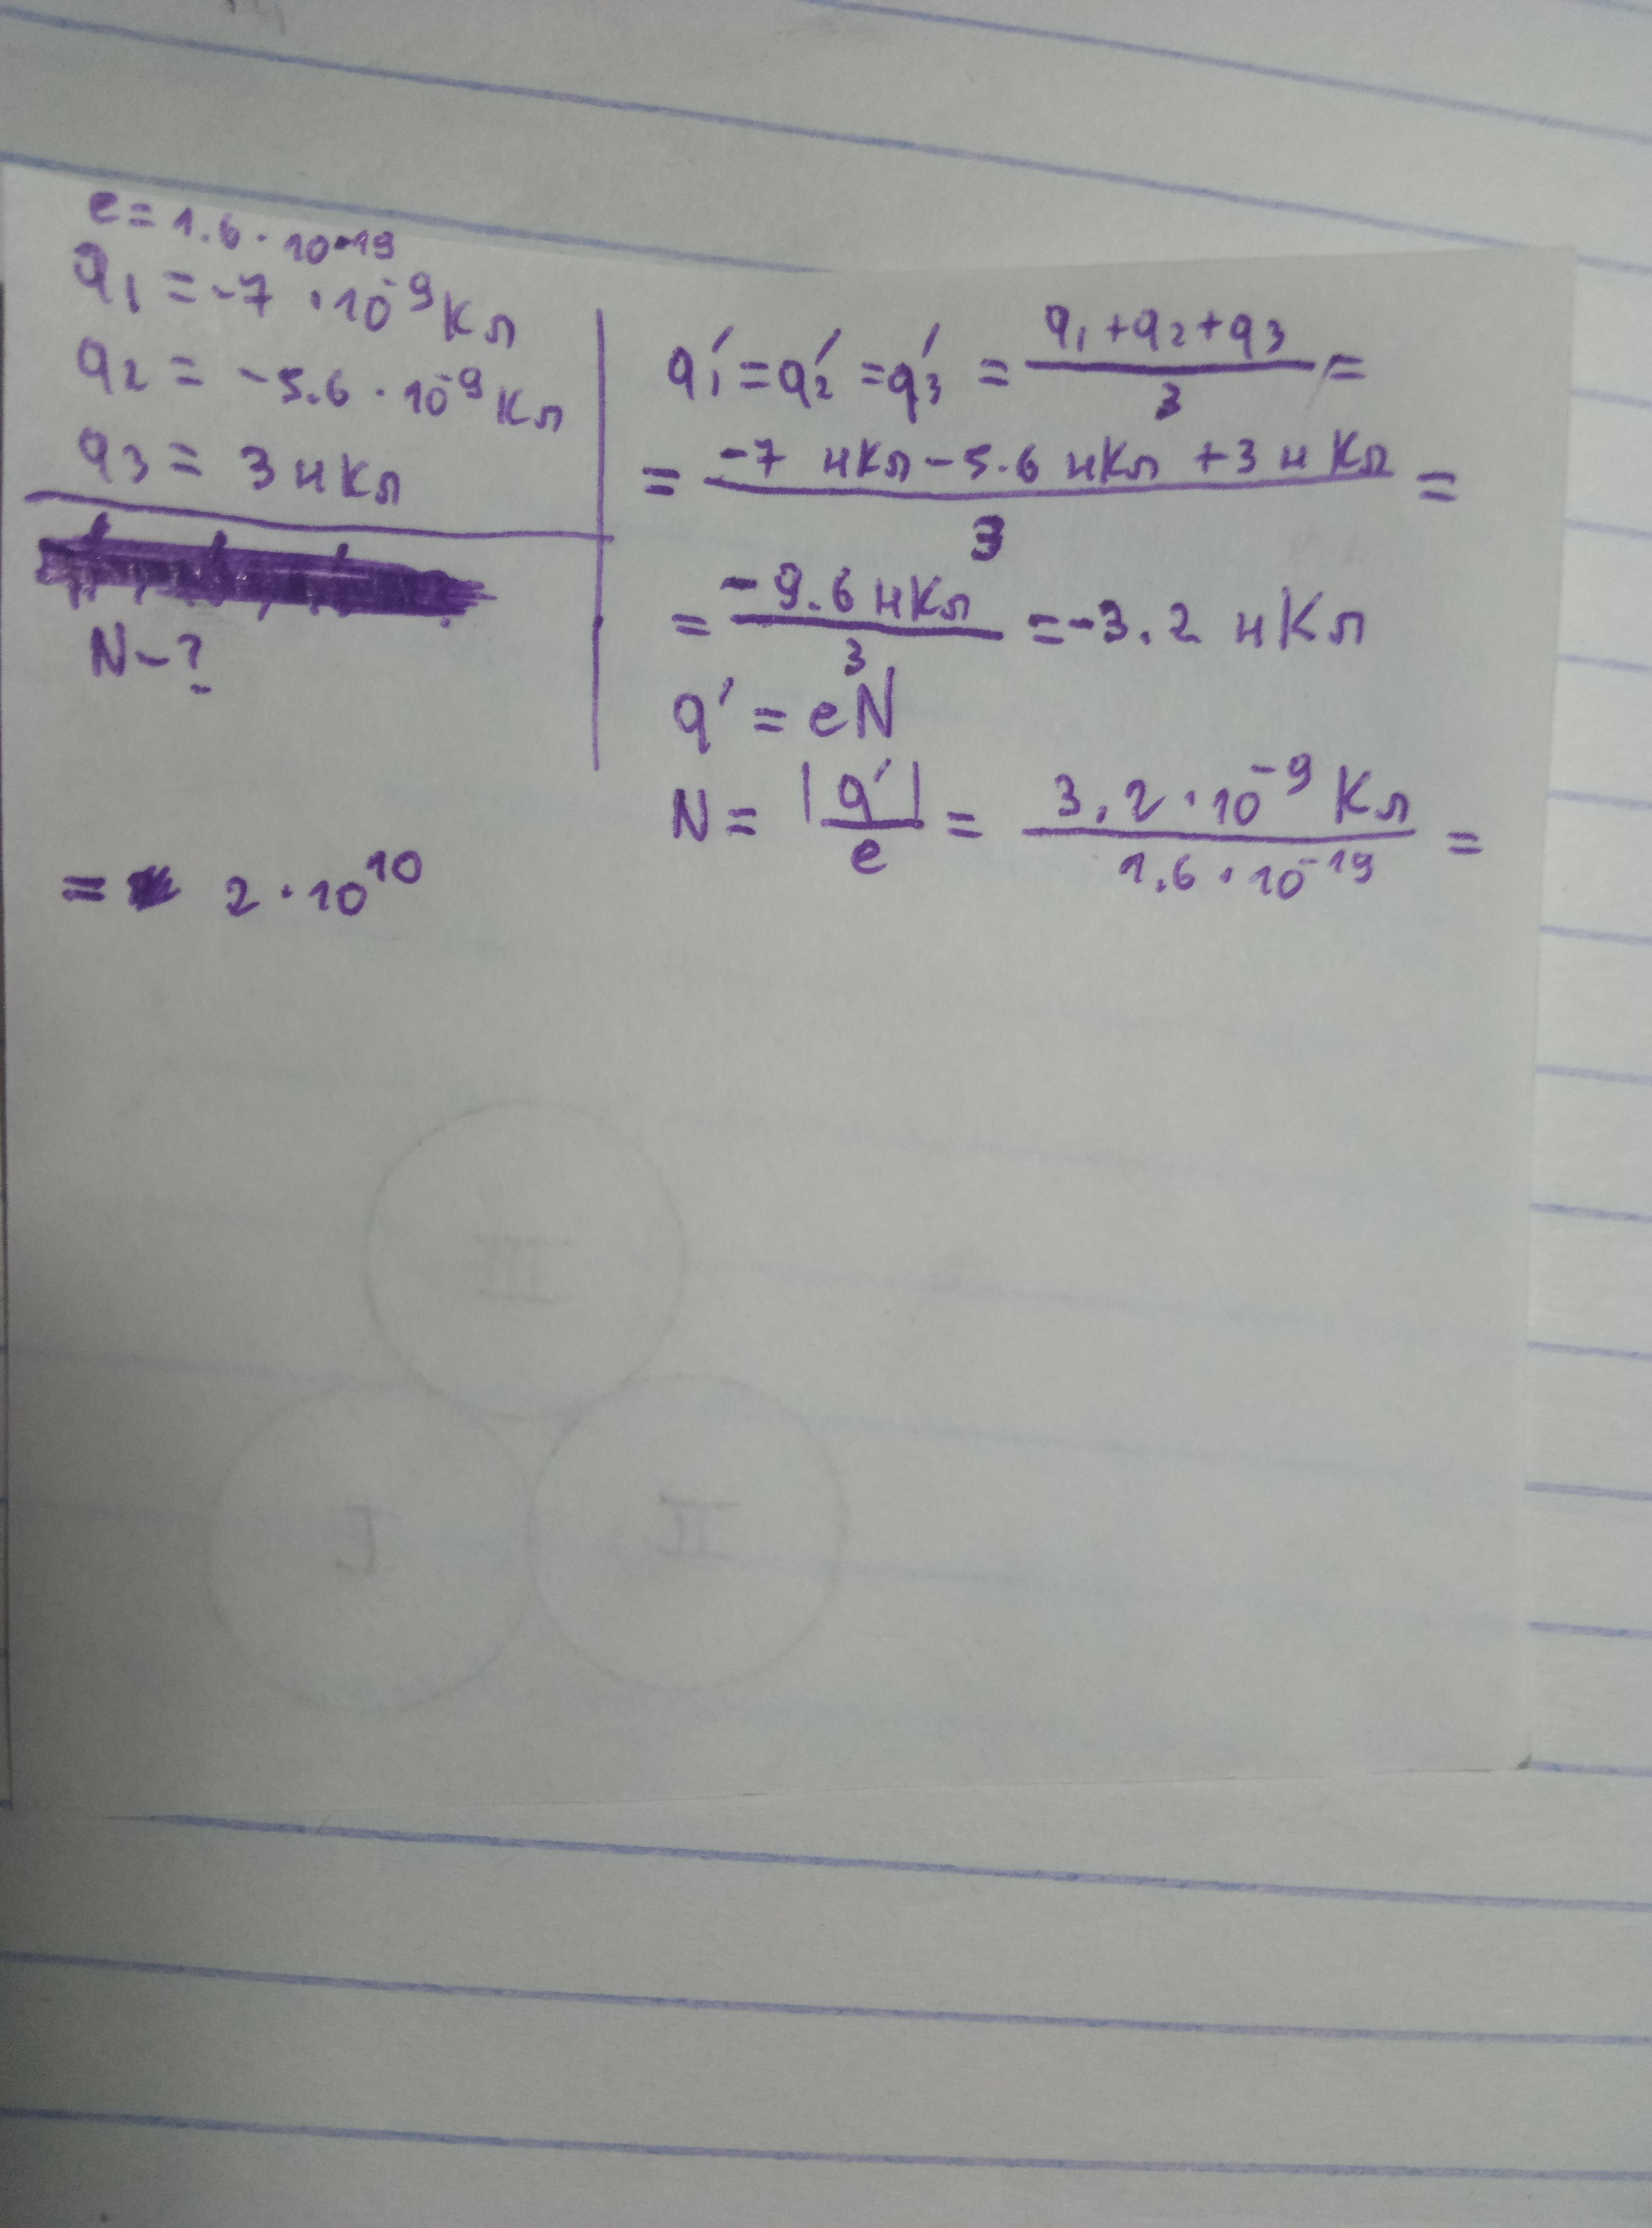 e = 1.6 · 10⁻¹⁹
q₁ = -7 · 10⁻⁹ Кл
q₂ = -5.6 · 10⁻⁹ Кл
q₃ = 3 нКл
N - ?
q₁′ = q₂′ = q₃′ = (q₁ + q₂ + q₃)/3 =
= (-7 нКл - 5.6 нКл + 3 нКл)/3 =
= (-9.6 нКл)/3 = -3.2 нКл
q′ = eN
N = |q′|/e = (3.2 · 10⁻⁹ Кл)/(1.6 · 10⁻¹⁹) =
= 2 · 10¹⁰
III
I II